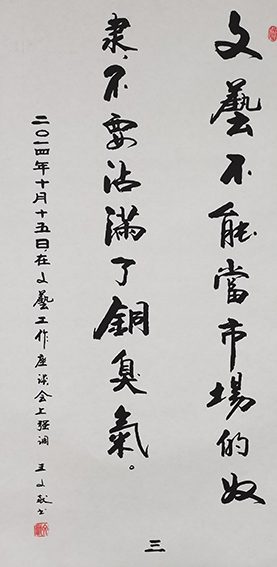 文藝不能當市場的奴
隶,不要沾满了銅臭氣。
二〇一四年十月十五日,在文藝工作座谈会上强调 王文献书
三